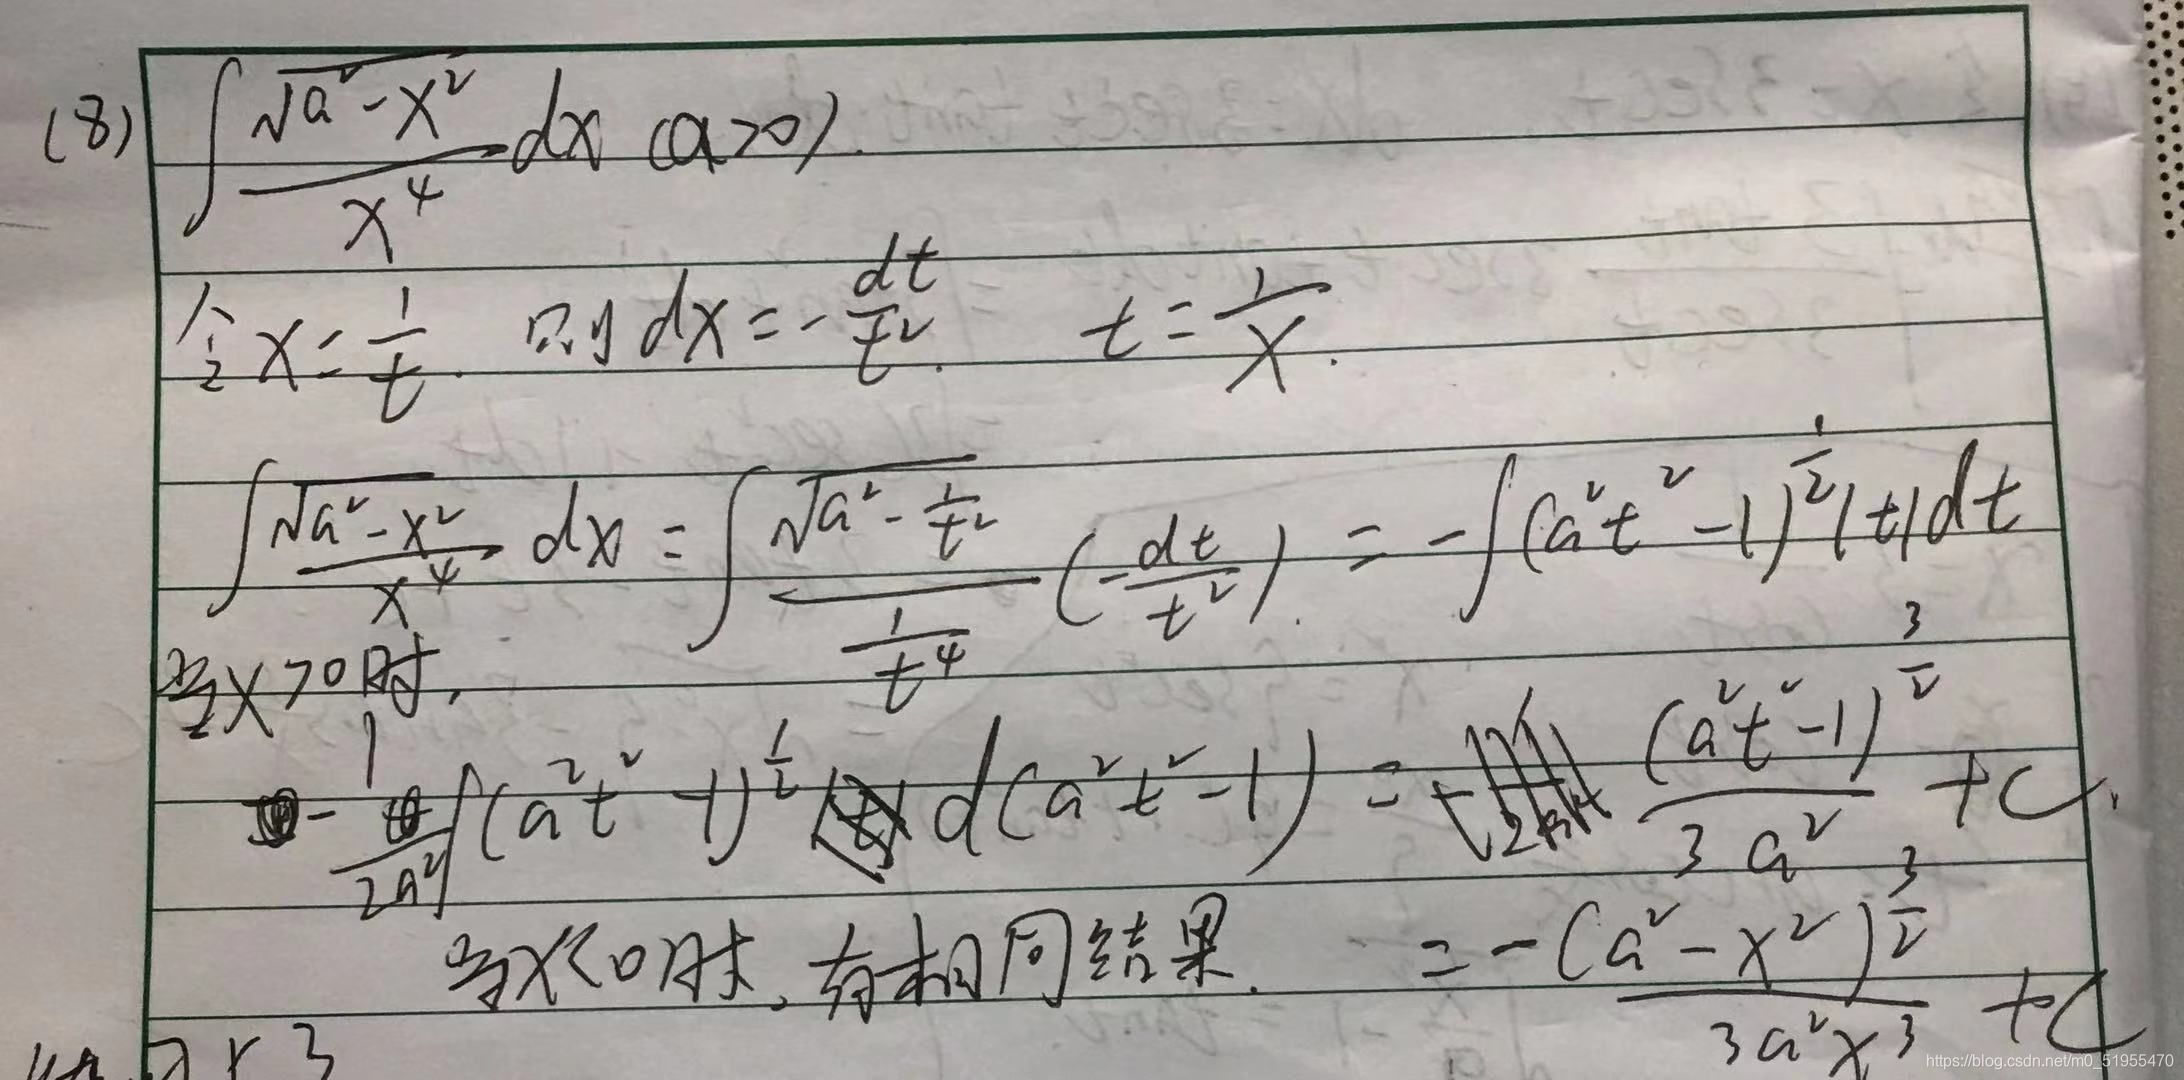 (8) ∫ √(a²-x²)/x⁴ dx (a>0).
令 x = 1/t. 则 dx = -dt/t². t = 1/x.
∫ √(a²-x²)/x⁴ dx = ∫ √(a²-1/t²)/(1/t⁴) (-dt/t²). = -∫(a²t²-1)^(1/2)|t|dt
当x>0时,
-1/(2a²) ∫(a²t²-1)^(1/2) d(a²t²-1) = - (a²t²-1)^(3/2)/(3a²) + C.
当x<0时, 有相同结果. = -(a²-x²)^(3/2)/(3a²x³) + C
https://blog.csdn.net/m0_51955470